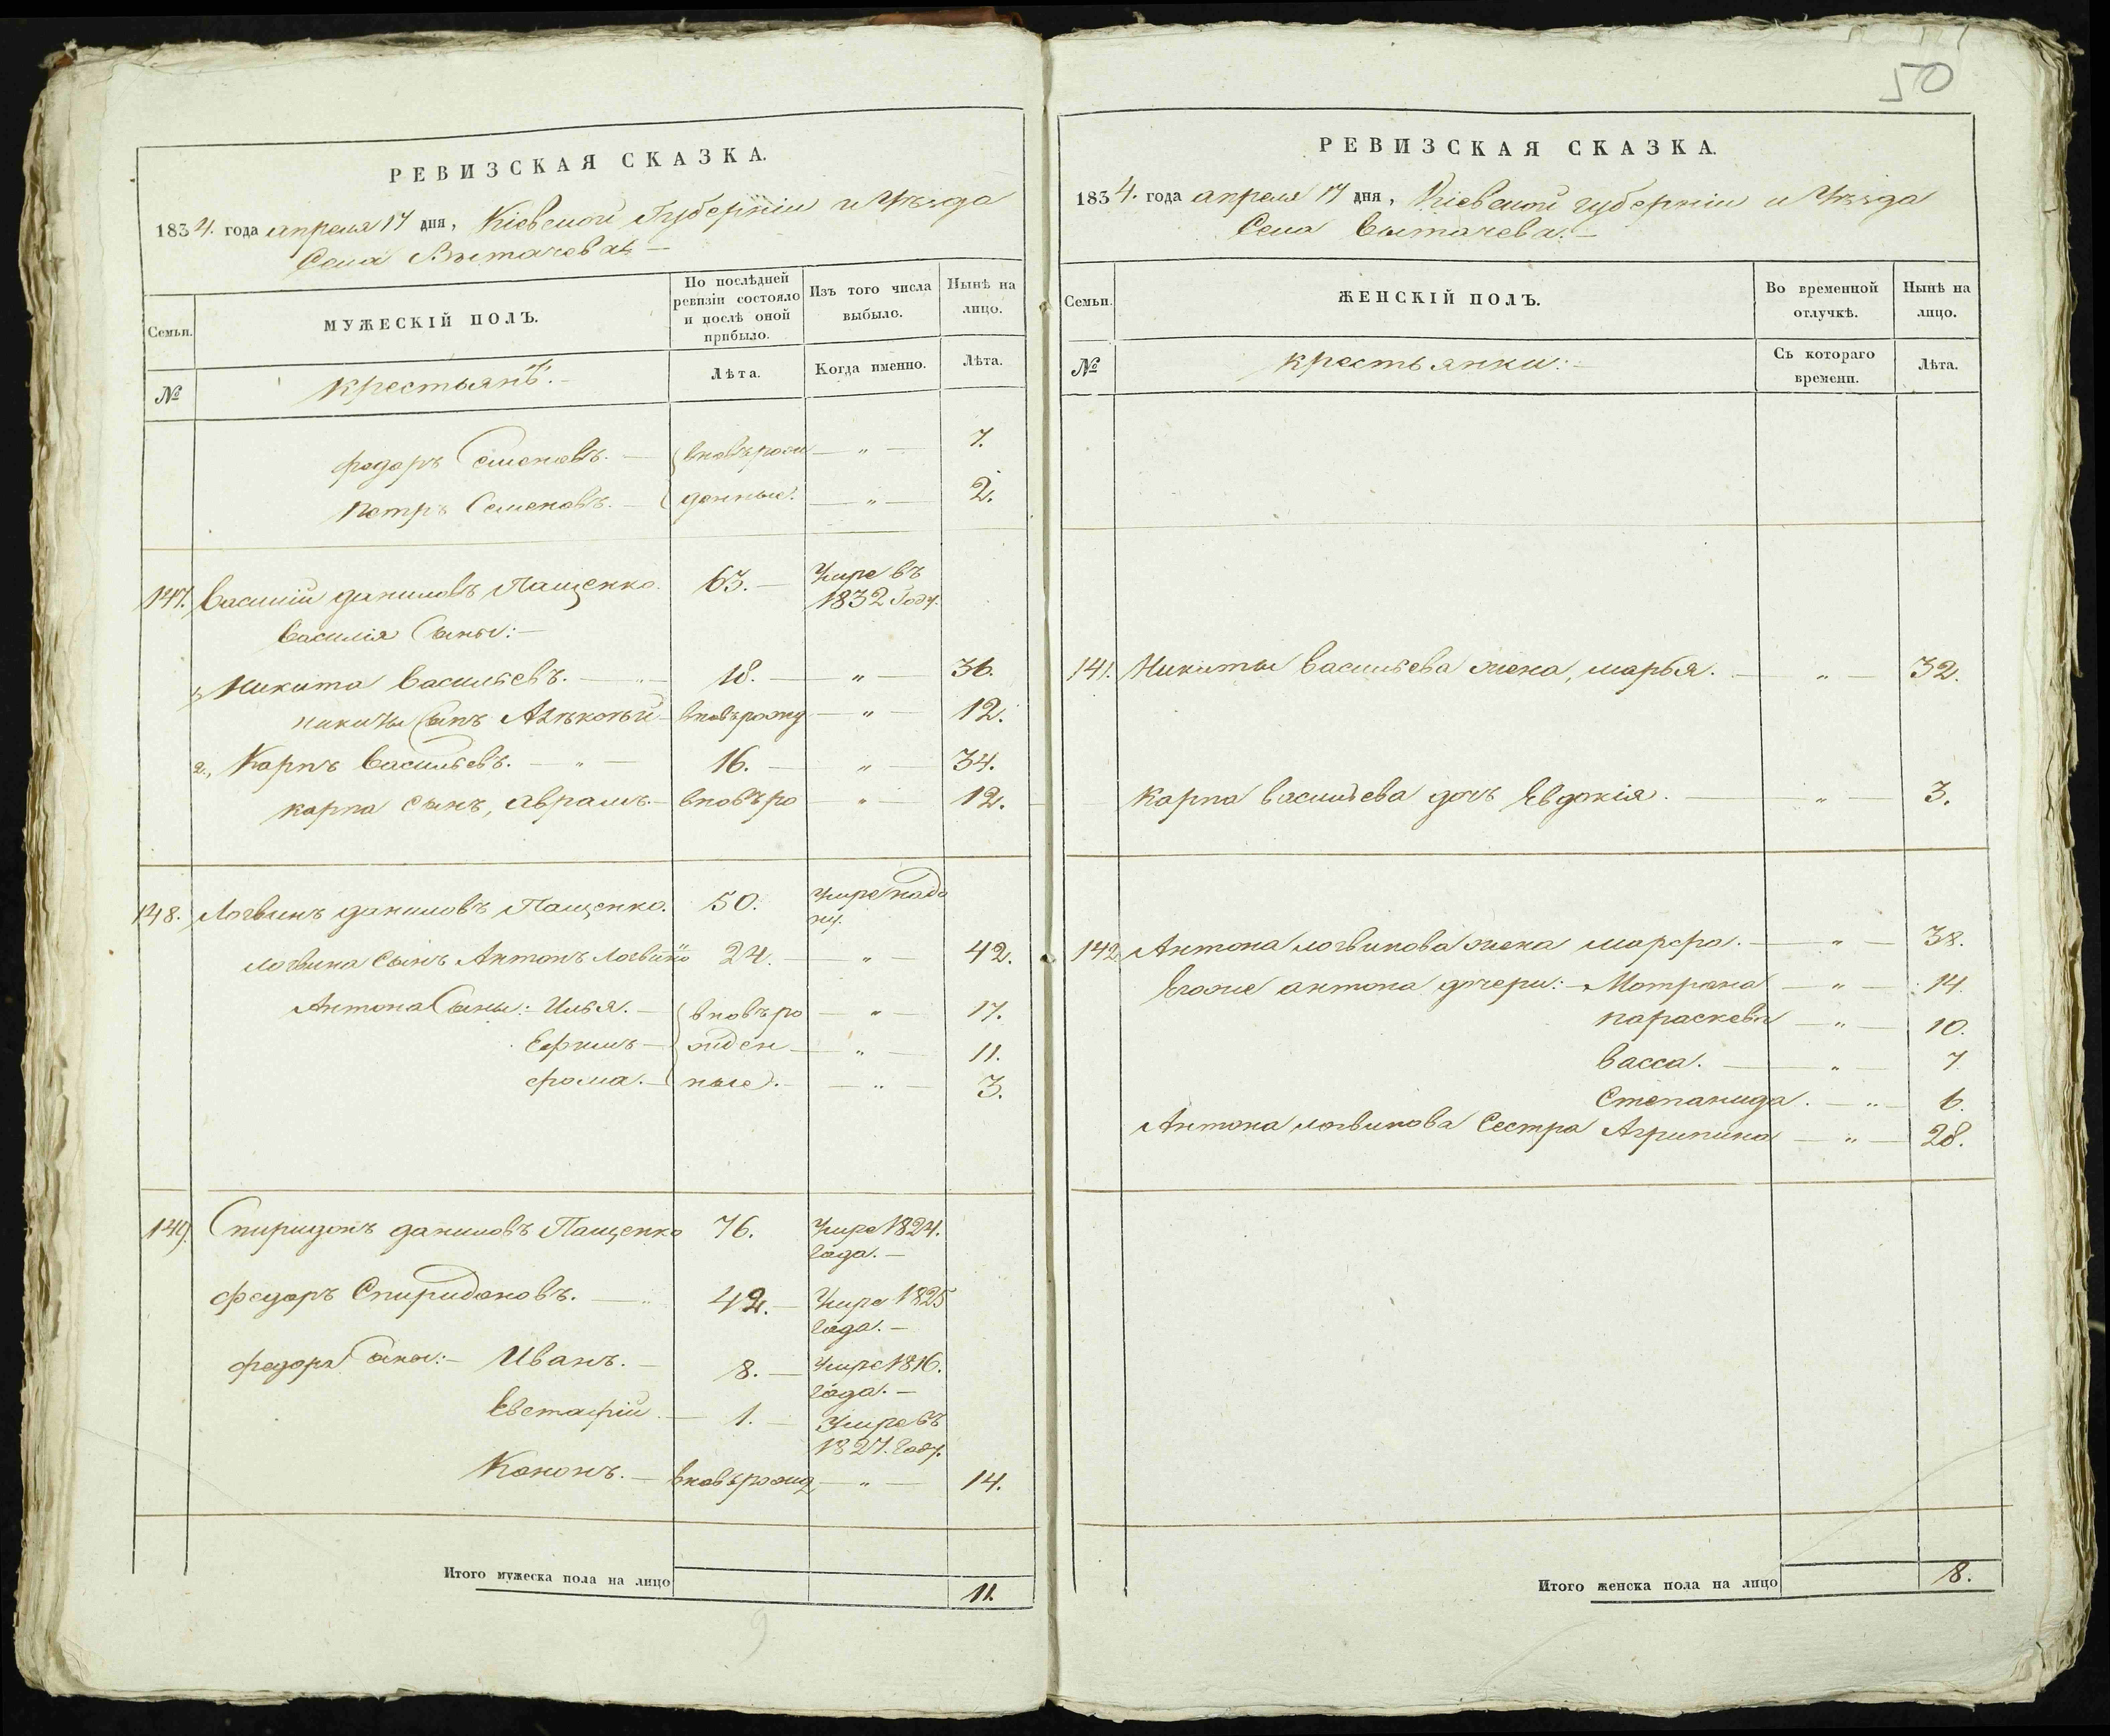 50
РЕВИЗСКАЯ СКАЗКА.
1834. года апреля 17 дня, Кіевской Губерніи и Уѣзда
Села Вытачева
Семьи.
МУЖЕСКІЙ ПОЛЪ.
По послѣдней ревизіи состояло и послѣ оной прибыло.
Изъ того числа выбыло.
Нынѣ на лицо.
№
крестьянъ.
Лѣта.
Когда именно.
Лѣта.
федоръ Семеновъ. — вновьрож — „ — 7.
Петръ Семеновъ. — денные. — „ — 2.
147. Василій даниловъ Пащенко. 63. — Умре въ
1832 Году.
Василія Сыны: —
1, Никита Васильевъ. — 18. — „ — 36.
никиты Сынъ — вновьрожд — „ — 12.
2., Карпъ Васильевъ. — „ — 16. — „ — 34.
карпа сынъ, Аврамъ. — вновъро — „ — 12.
148. Логвинъ даниловъ Пащенко. 50. Умре
логвина Сынъ Антонъ 24. — „ — 42.
Антона Сыны: Илья. — вновъро — „ — 17.
Ефимъ — жден — „ — 11.
фома. — ные. — „ — 3.
149. Спиридонъ даниловъ Пащенко 76. Умре 1824.
года. —
федоръ Спиридоновъ. — 42. — Умре 1825
года. —
федора Сыны: — Иванъ. — 8. — Умре 1816.
года. —
Евстафій. — 1. — Умре въ
1827. году.
Кононъ. — вновьрожд — „ — 14.
Итого мужеска пола на лицо
11.
РЕВИЗСКАЯ СКАЗКА.
1834. года апреля 17 дня, Кіевской губерніи и Уѣзда
Села Вытачева. —
Семьи.
ЖЕНСКІЙ ПОЛЪ.
Во временной отлучкѣ.
Нынѣ на лицо.
№
крестьянки: —
Съ котораго времени.
Лѣта.
141. Никиты Васильева жена, марья. — „ — 32.
Карпа васильева дочь Евдокія. — „ — 3.
142. Антона логвинова жена марфа. — „ — 38.
Егоже антона дочери: — Мотрона — „ — 14.
параскева — „ — 10.
васса. — „ — 7
Степанида. — „ — 6.
Антона логвинова Сестра Агрипина — „ — 28.
Итого женска пола на лицо
8.